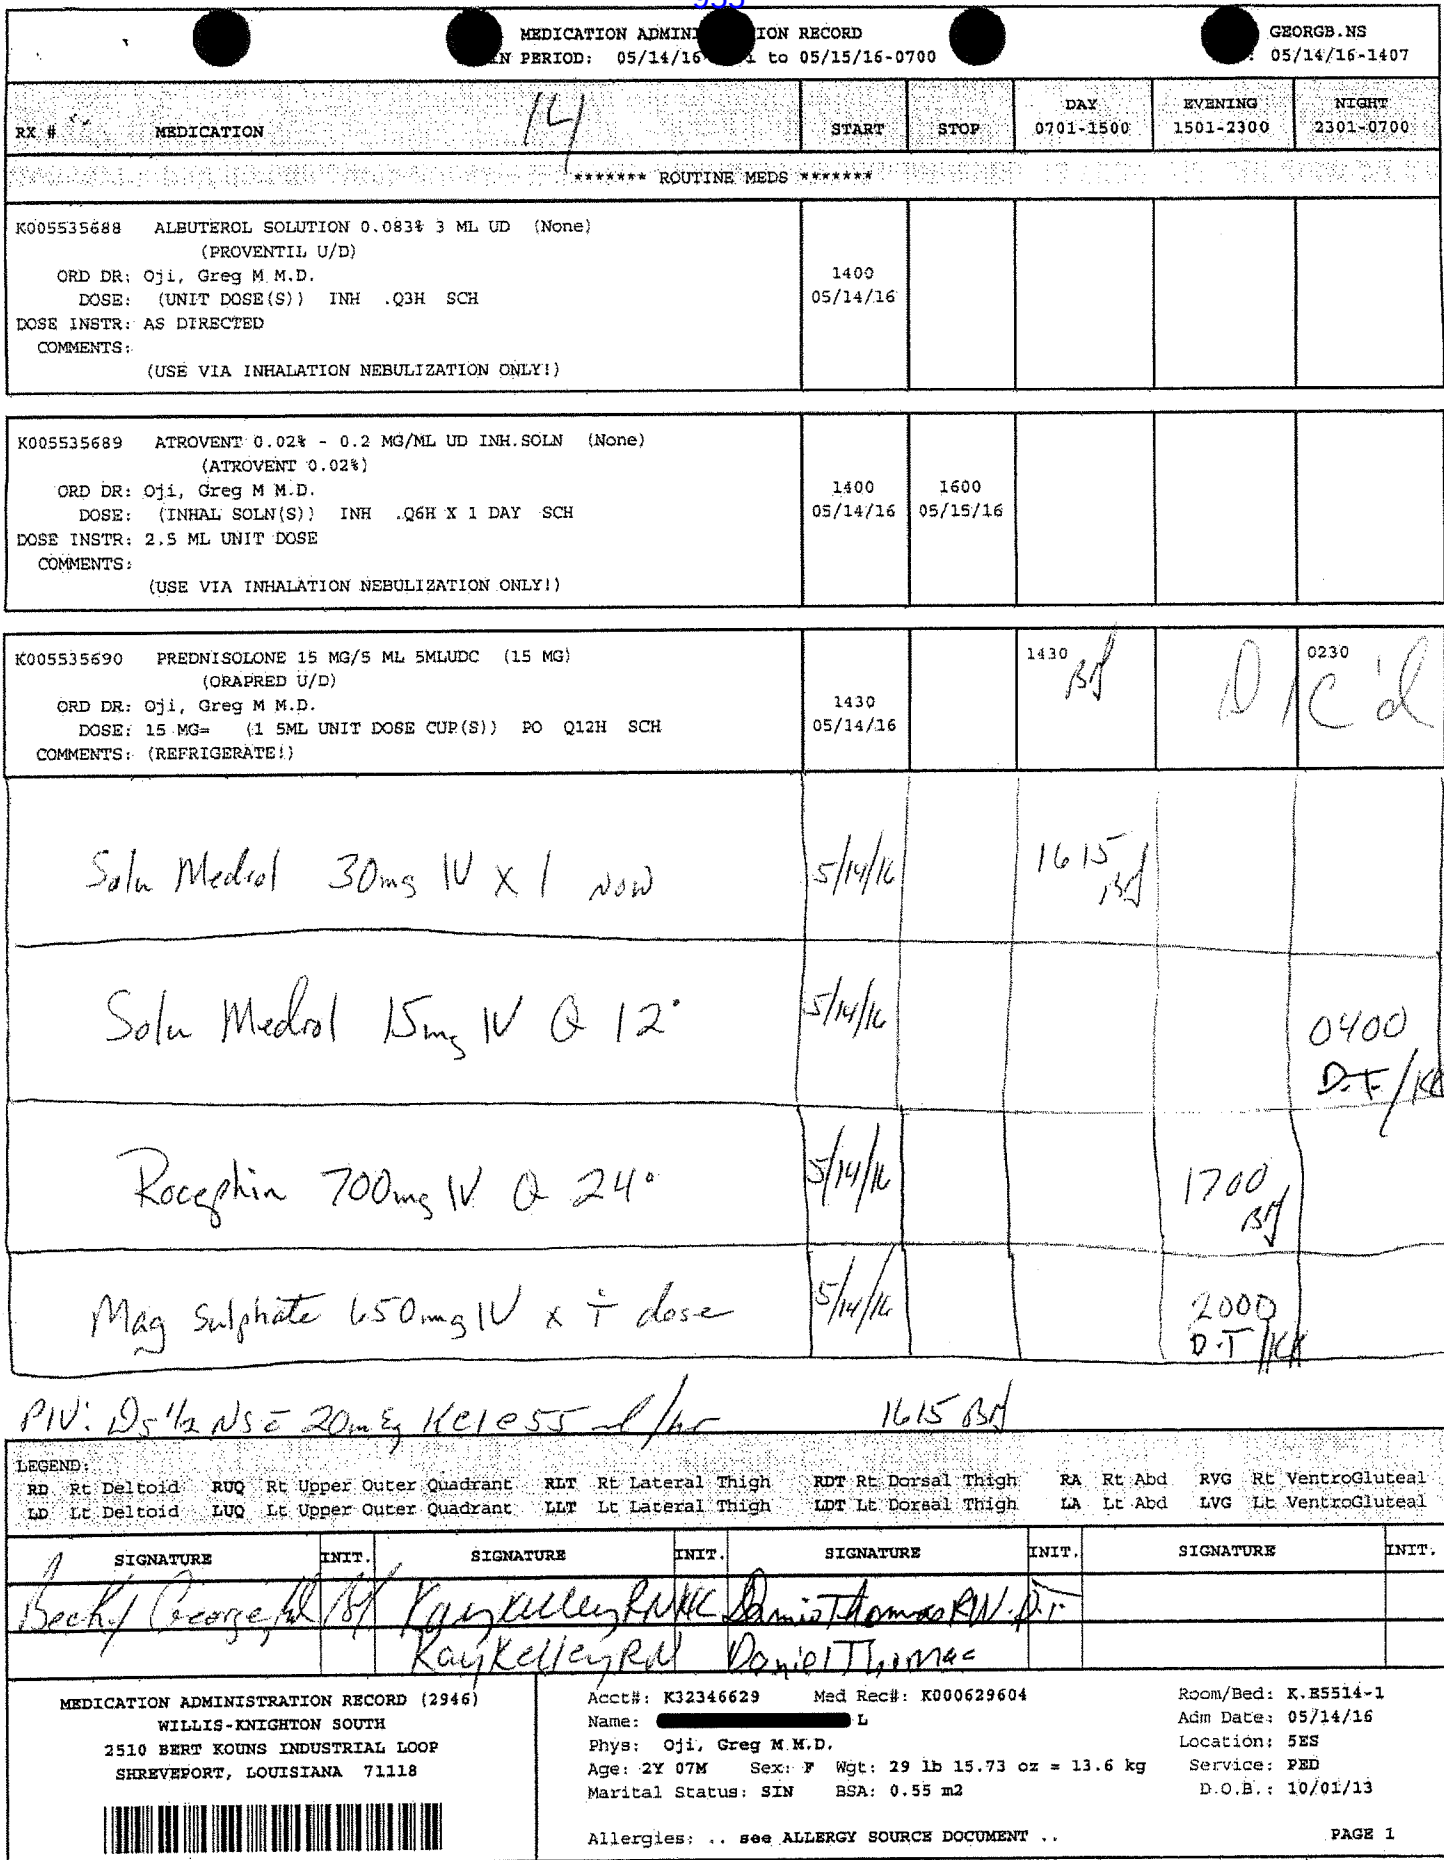 955
MEDICATION ADMINI ION RECORD GEORGB.NS
N PERIOD: 05/14/16 1 to 05/15/16-0700 : 05/14/16-1407
14
RX # MEDICATION START STOP DAY 0701-1500 EVENING 1501-2300 NIGHT 2301-0700
******* ROUTINE MEDS *******
K005535688 ALBUTEROL SOLUTION 0.083% 3 ML UD (None)
(PROVENTIL U/D)
ORD DR: Oji, Greg M M.D. 1400
DOSE: (UNIT DOSE(S)) INH .Q3H SCH 05/14/16
DOSE INSTR: AS DIRECTED
COMMENTS:
(USE VIA INHALATION NEBULIZATION ONLY!)
K005535689 ATROVENT 0.02% - 0.2 MG/ML UD INH.SOLN (None)
(ATROVENT 0.02%)
ORD DR: Oji, Greg M M.D. 1400 1600
DOSE: (INHAL SOLN(S)) INH .Q6H X 1 DAY SCH 05/14/16 05/15/16
DOSE INSTR: 2.5 ML UNIT DOSE
COMMENTS:
(USE VIA INHALATION NEBULIZATION ONLY!)
K005535690 PREDNISOLONE 15 MG/5 ML 5MLUDC (15 MG) 1430 BG D/C'd 0230
(ORAPRED U/D)
ORD DR: Oji, Greg M M.D. 1430
DOSE: 15 MG= (1 5ML UNIT DOSE CUP(S)) PO Q12H SCH 05/14/16
COMMENTS: (REFRIGERATE!)
Solu Medrol 30mg IV X 1 now 5/14/16 1615 BG
Solu Medrol 15mg IV Q 12° 5/14/16 0400
D.T/KK
Rocephin 700mg IV Q 24° 5/14/16 1700 BG
Mag Sulphate 650mg IV x i dose 5/14/16 2000
D.T/KK
PIV: D5 1/2 NS c̄ 20mEq KCl @ 55 ml/hr 1615 BG
LEGEND:
RD Rt Deltoid RUQ Rt Upper Outer Quadrant RLT Rt Lateral Thigh RDT Rt Dorsal Thigh RA Rt Abd RVG Rt VentroGluteal
LD Lt Deltoid LUQ Lt Upper Outer Quadrant LLT Lt Lateral Thigh LDT Lt Dorsal Thigh LA Lt Abd LVG Lt VentroGluteal
SIGNATURE INIT. SIGNATURE INIT. SIGNATURE INIT. SIGNATURE INIT.
Becky George BG Kay Kelley RN KK Daniel Thomas RN D.T.
Kay Kelley RN Daniel Thomas
MEDICATION ADMINISTRATION RECORD (2946)
WILLIS-KNIGHTON SOUTH
2510 BERT KOUNS INDUSTRIAL LOOP
SHREVEPORT, LOUISIANA 71118
Acct#: K32346629 Med Rec#: K000629604 Room/Bed: K.E5514-1
Name: L Adm Date: 05/14/16
Phys: Oji, Greg M M.D. Location: 5ES
Age: 2Y 07M Sex: F Wgt: 29 lb 15.73 oz = 13.6 kg Service: PED
Marital Status: SIN BSA: 0.55 m2 D.O.B.: 10/01/13
Allergies: .. see ALLERGY SOURCE DOCUMENT .. PAGE 1